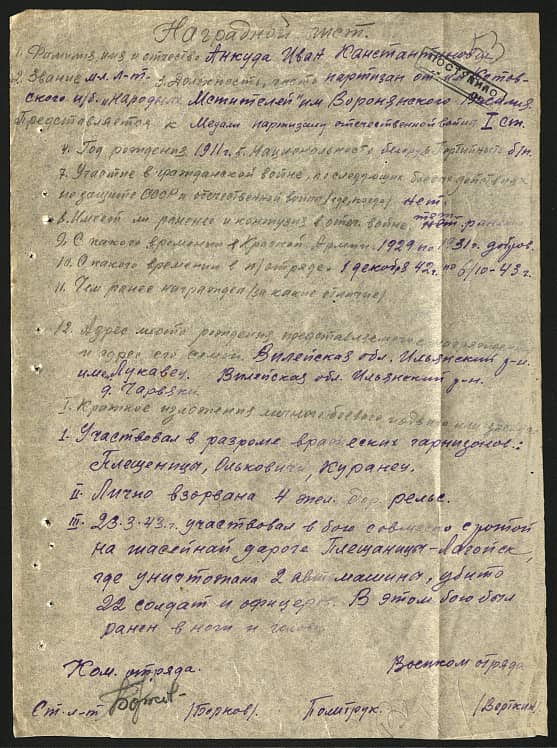 Наградной лист.
53
ПОСТУПИЛО
1. Фамилия, имя и отчество Анкуда Иван Канстантинович
2. Звание мл. л-т. 3. Должность, часть партизан от
ского п/б. "Народных Мстителей" им Воронянского
Представляется к Медали партизану отечественной война I ст.
4. Год рождения 1911 г. 5. Национальность белорус. Партийность б/п.
7. Участие в гражданской войне, последующих боевых действиях
по защите СССР и отечественной войне (где, когда) нет
8. Имеет ли ранения и контузия в отеч. войне, ранен
9. С какого времени в Красной Армии. 1929 по 1931 г. добров.
10. С какого времени в п/отряде 1 декабря 42 г. по 6/10-43 г.
11. Чем ранее награжден (за какие отличия)
12. Адрес место рождения представляемого к награждению
и адрес его семьи. Вилейская обл. Ильянский р-н.
Лукавец. Вилейская обл. Ильянский р-н.
д.
I. Краткое изложения личного боевого
I. Участвовал в разроме вражеских гарнизонов:
Плещеницы, Ольковичи, Куранец.
II. Лично взорвана 4 жел. дор. рельс.
III. 23.3.43 г. участвовал в бою совместно с ротой
на шасейнай дароге Плещаницы-Лагойск,
где уничтожана 2 автомашины, убито
22 солдат и офицеров. В этом бою был
ранен в ноги и голову
Ком. отряда. Военком отряда
Ст. л-т /Борков/. Политрук. /Верткин/